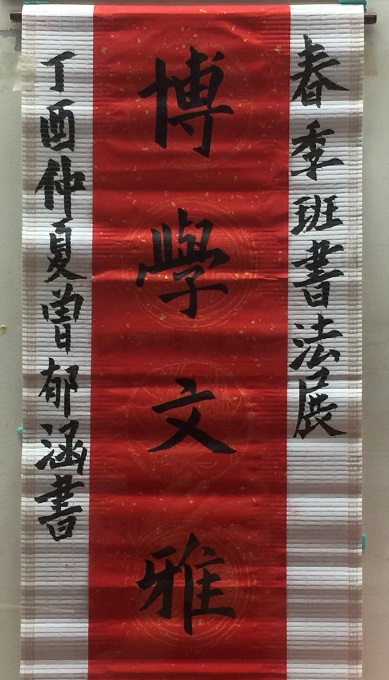 春季班書法展
博學文雅
丁酉仲夏曾郁涵書